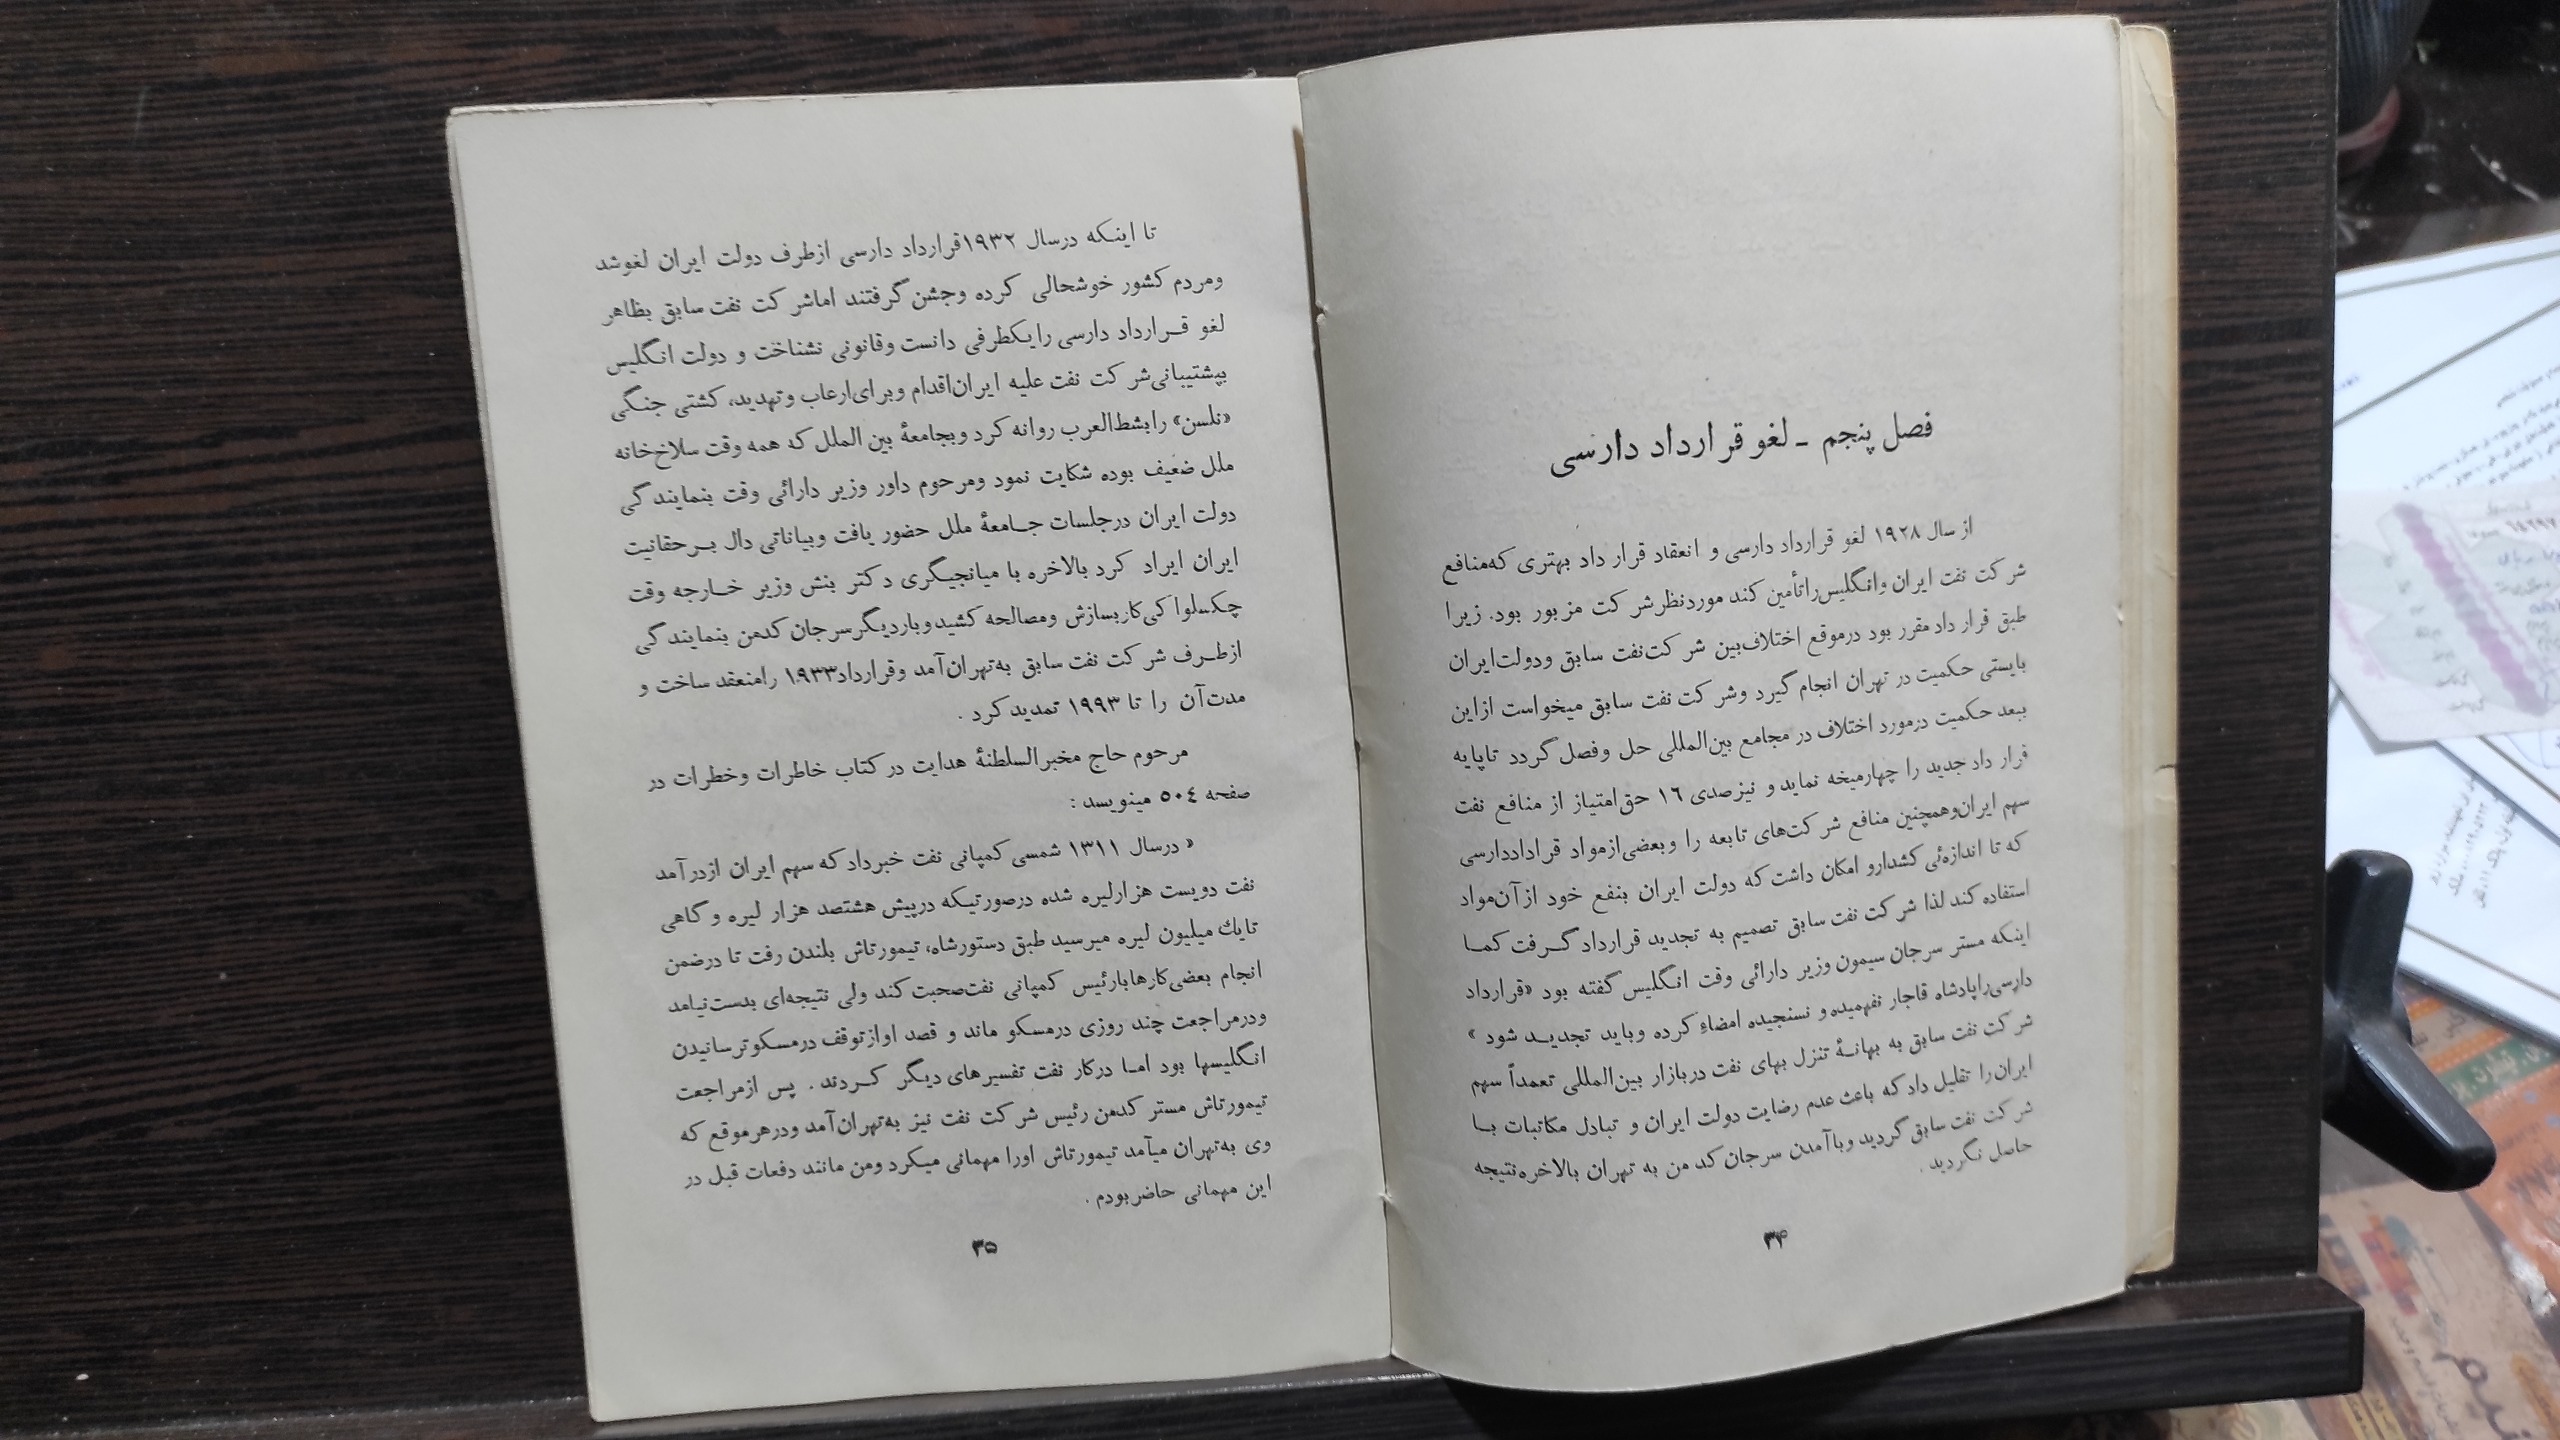 فصل پنجم ـ لغو قرارداد دارسی
از سال ۱۹۲۸ لغو قرارداد دارسی و انعقاد قرار داد بهتری که‌منافع
شرکت نفت ایران وانگلیس‌راتأمین کند موردنظرشرکت مزبور بود. زیرا
طبق قرار داد مقرر بود درموقع اختلاف‌بین شرکت‌نفت سابق ودولت‌ایران
بایستی حکمیت در تهران انجام گیرد وشرکت نفت سابق میخواست ازاین
ببعد حکمیت درمورد اختلاف در مجامع بین‌المللی حل وفصل گردد تاپایه
قرار داد جدید را چهارمیخه نماید و نیزصدی ۱۶ حق‌امتیاز از منافع نفت
سهم ایران‌وهمچنین منافع شرکت‌های تابعه را وبعضی‌ازمواد قراداددارسی
که تا اندازه‌ئی کشدارو امکان داشت‌که دولت ایران بنفع خود ازآن‌مواد
استفاده کند لذا شرکت نفت سابق تصمیم به تجدید قرارداد گرفت کما
اینکه مستر سرجان سیمون وزیر دارائی وقت انگلیس گفته بود «قرارداد
دارسی‌راپادشاه قاجار نفهمیده و نسنجیده امضاء کرده وباید تجدید شود »
شرکت نفت سابق به بهانهٔ تنزل بهای نفت دربازار بین‌المللی تعمداً سهم
ایران‌را تقلیل دادکه باعث عدم رضایت دولت ایران و تبادل مکاتبات با
شرکت نفت سابق گردید وباآمدن سرجان کد من به تهران بالاخره‌نتیجه
حاصل نگردید .
۳۴
تا اینکه درسال ۱۹۳۲قرارداد دارسی ازطرف دولت ایران لغوشد
ومردم کشور خوشحالی کرده وجشن گرفتند اماشرکت نفت سابق بظاهر
لغو قرارداد دارسی رایکطرفی دانست وقانونی نشناخت و دولت انگلیس
بپشتیبانی‌شرکت نفت علیه ایران‌اقدام وبرای‌ارعاب وتهدید، کشتی جنگی
«نلسن» رابشط‌العرب روانه کرد وبجامعهٔ بین الملل که همه وقت سلاخ‌خانه
ملل ضعیف بوده شکایت نمود ومرحوم داور وزیر دارائی وقت بنمایندگی
دولت ایران درجلسات جامعهٔ ملل حضور یافت وبیاناتی دال برحقانیت
ایران ایراد کرد بالاخره با میانجیگری دکتر بنش وزیر خارجه وقت
چکسلواکی‌کاربسازش ومصالحه کشیدوباردیگرسرجان کدمن بنمایندگی
ازطرف شرکت نفت سابق به‌تهران‌آمد وقرارداد۱۹۳۳ رامنعقد ساخت و
مدت‌آن را تا ۱۹۹۳ تمدید کرد .
مرحوم حاج مخبرالسلطنهٔ هدایت در کتاب خاطرات وخطرات در
صفحه ۵۰٤ مینویسد :
« درسال ۱۳۱۱ شمسی کمپانی نفت خبرداد که سهم ایران ازدرآمد
نفت دویست هزارلیره شده درصورتیکه درپیش هشتصد هزار لیره و گاهی
تایك میلیون لیره میرسید طبق دستورشاه، تیمورتاش بلندن رفت تا درضمن
انجام بعضی‌کارهابارئیس کمپانی نفت‌صحبت کند ولی نتیجه‌ای بدست‌نیامد
ودرمراجعت چند روزی درمسکو ماند و قصد اوازتوقف درمسکوترسانیدن
انگلیسها بود اما درکار نفت تفسیرهای دیگر کردند . پس ازمراجعت
تیمورتاش مستر کدمن رئیس شرکت نفت نیز به‌تهران‌آمد ودرهرموقع که
وی به‌تهران میآمد تیمورتاش اورا مهمانی میکرد ومن مانند دفعات قبل در
این مهمانی حاضربودم .
۳۵